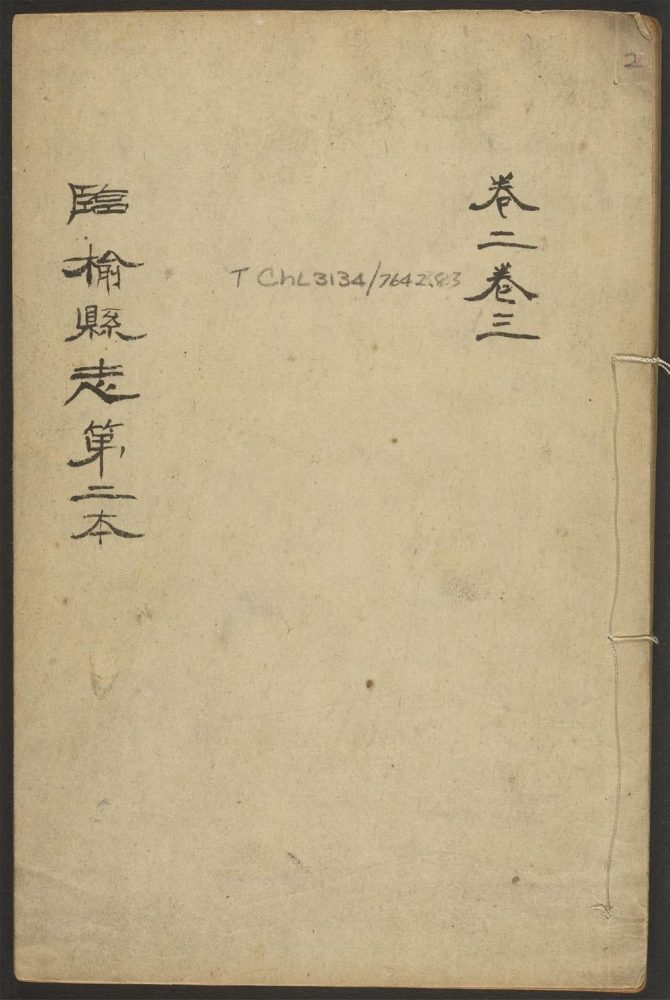 2
卷二卷三
T ChL3134/7642.83
臨榆縣志第二本